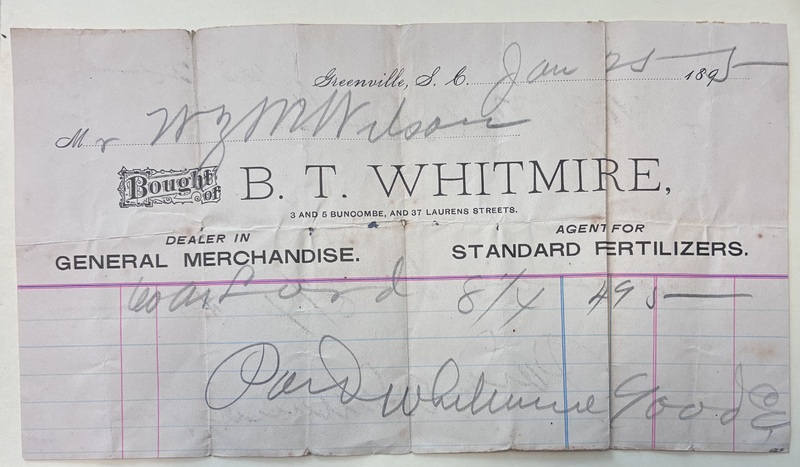 Greenville, S. C. Jan 25 1895
Mr W M Wilson
Bought of B. T. WHITMIRE,
3 AND 5 BUNCOMBE, AND 37 LAURENS STREETS.
DEALER IN
GENERAL MERCHANDISE.
AGENT FOR
STANDARD FERTILIZERS.
Lard 8 1/4 495
Paid Whitmire